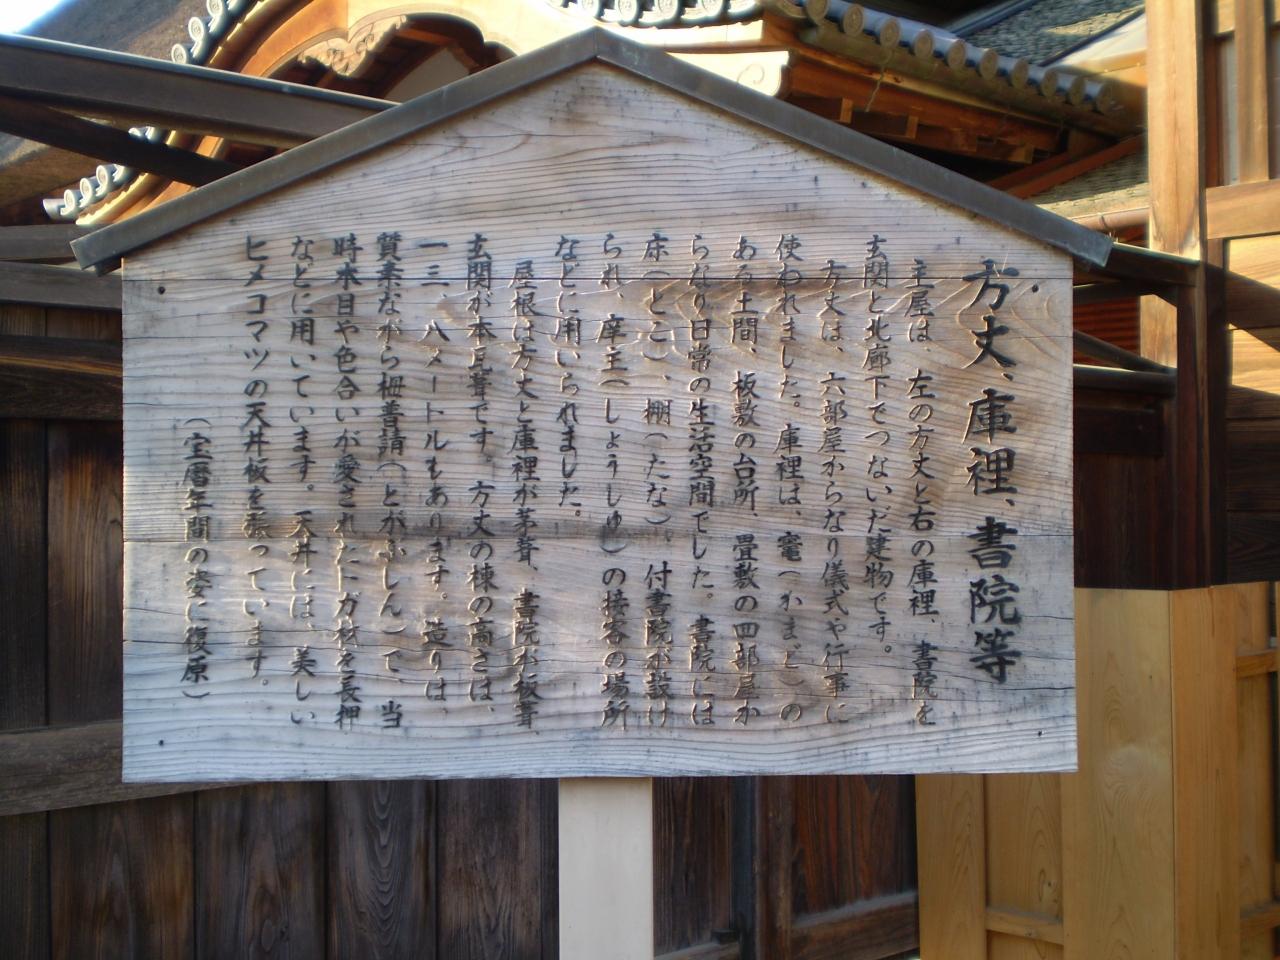 方丈、庫裡、書院等
主屋は、左の方丈と右の庫裡、書院を
玄関と北廊下でつないだ建物です。
方丈は、六部屋からなり儀式や行事に
使われました。庫裡は、竃(かまど)の
ある土間、板敷の台所、畳敷の四部屋か
らなり日常の生活空間でした。書院には
床(とこ)、棚(たな)。付書院が設け
られ、庠主(しょうしゅ)の接客の場所
などに用いられました。
屋根は方丈と庫裡が茅葺、書院が板葺、
玄関が本瓦葺です。方丈の棟の高さは、
一三、八メートルもあります。造りは、
質素ながら栂普請(とがふしん)で、当
時木目や色合いが愛されたトガ材を長押
などに用いています。天井には、美しい
ヒメコマツの天井板を張っています。
(宝暦年間の姿に復原)